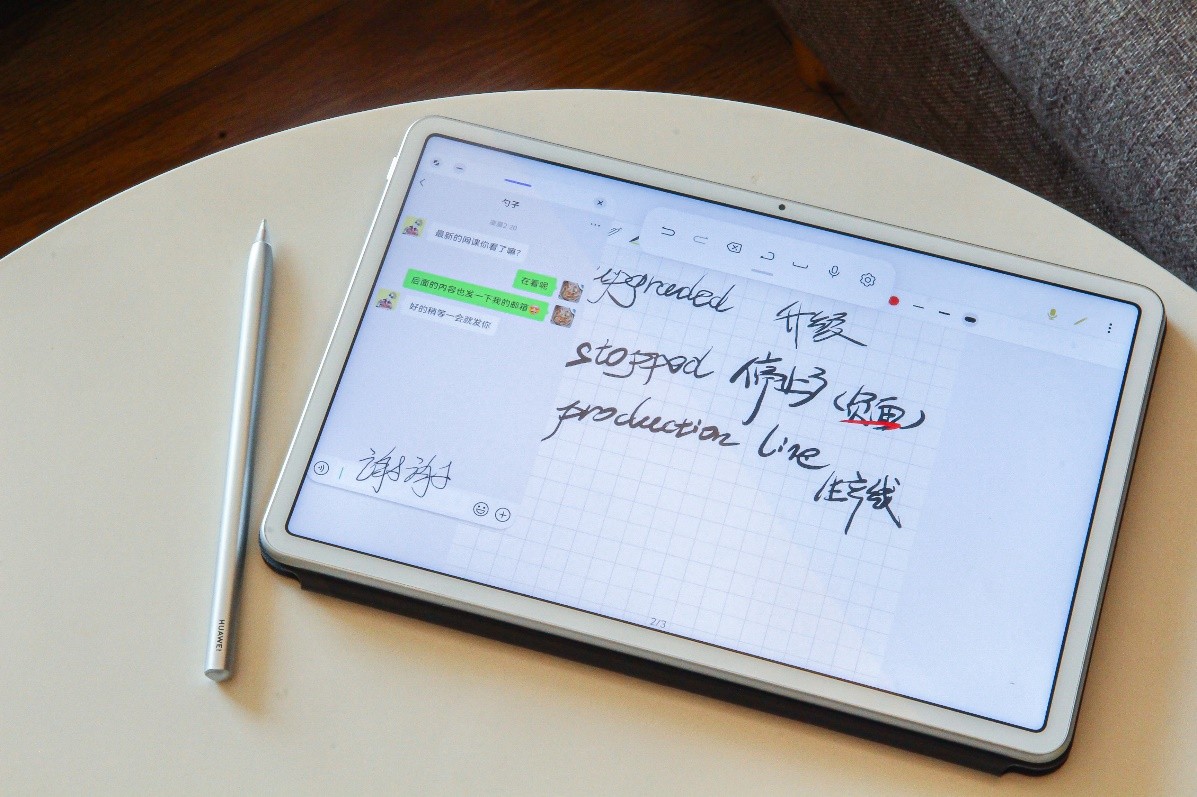 勺子
最新的网课你看了嘛?
在看呢
后面的内容也发一下我的邮箱🥰
好的稍等一会就发你
谢谢
upgraded 升级
stopped 停止了(负面)
production line
生产线
2/3
HUAWEI